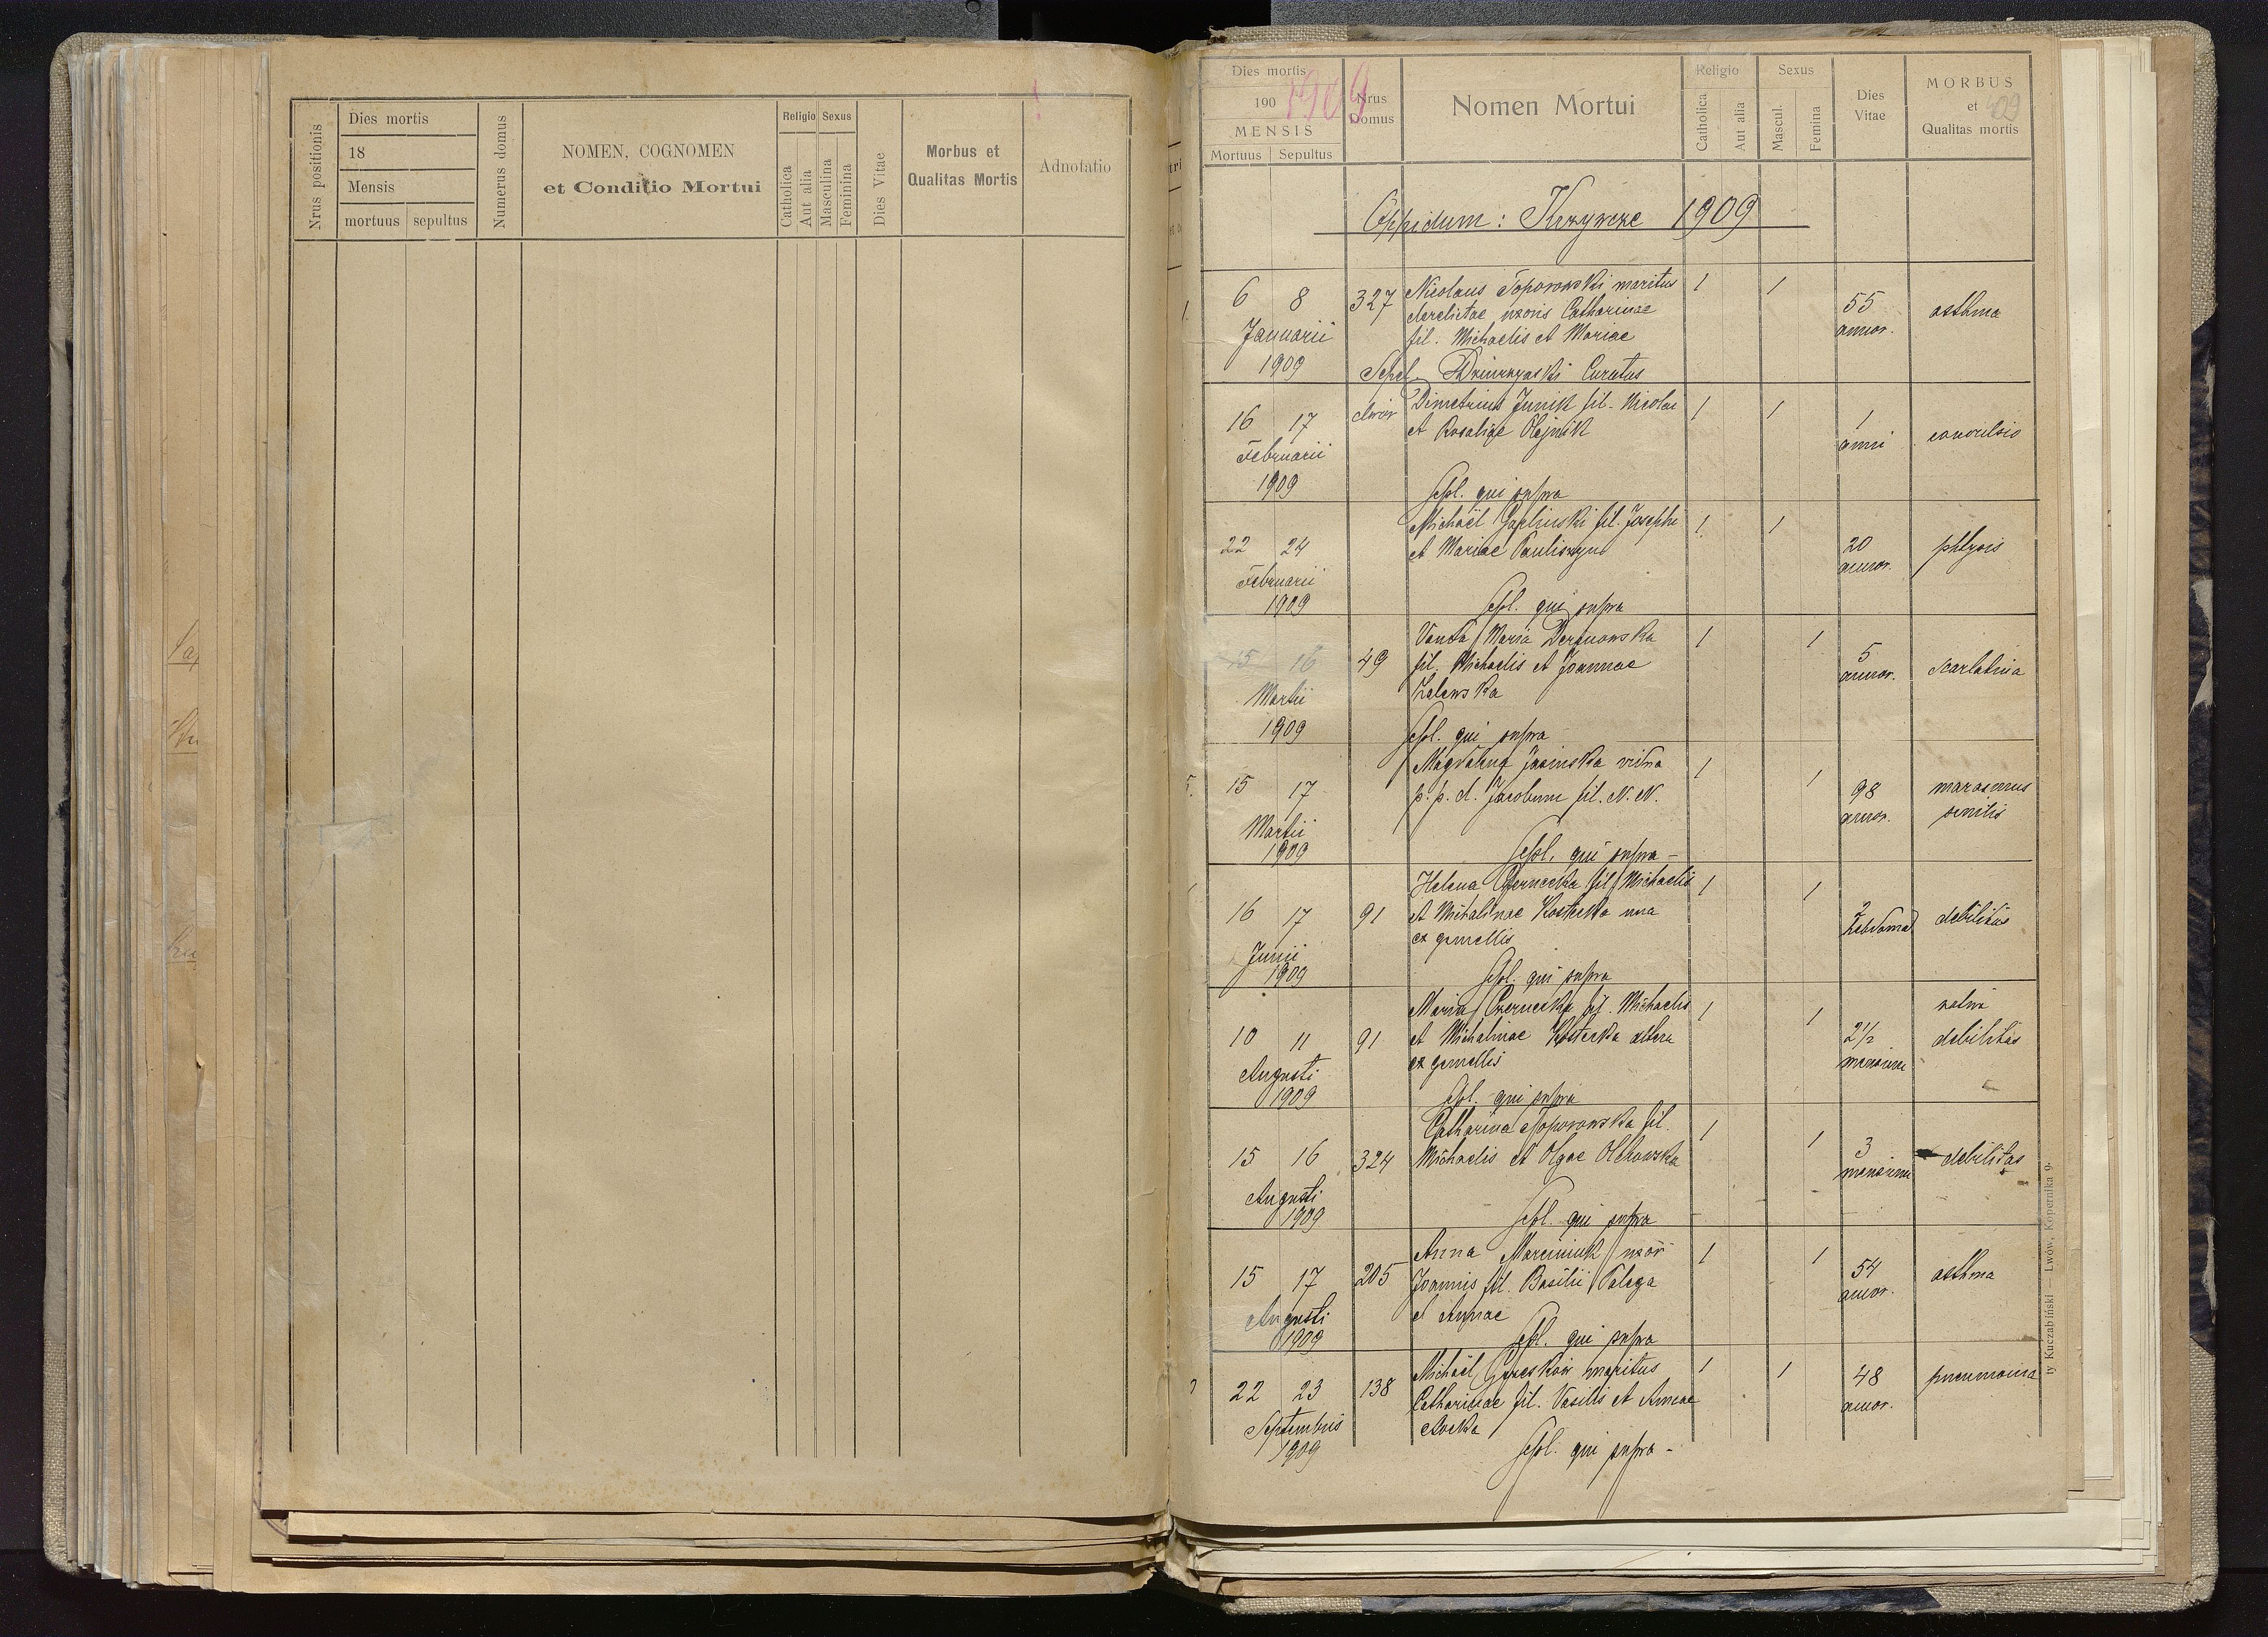 Nrus positionis
Dies mortis
18
Mensis
mortuus sepultus
Numerus domus
NOMEN, COGNOMEN
et Conditio Mortui
Religio Sexus
Catholica
Aut alia
Masculina
Feminina
Dies Vitae
Morbus et
Qualitas Mortis
Adnotatio
Dies mortis
190 1909
MENSIS
Mortuus Sepultus
Nrus
Domus
Nomen Mortui
Religio
Catholica
Aut alia
Sexus
Mascul.
Femina
Dies
Vitae
MORBUS
et
Qualitas mortis
Oppidum: Krzywcze 1909
6 8 327 Nicolaus Toporowski maritus 1 1 55 asthma
derelictae uxoris Catharinae annor.
Januarii fil. Michaelis et Mariae
1909 Sepel. Curatus
16 17 dwór Dimetrius Junik fil. Nicolai 1 1 1 convulsio
et Rosaliae Olejnik anni
Februarii
1909 Sepl. qui supra
22 24 Michael fil. Josephi 1 1 20 phtysis
et Mariae Pauliszyn annor.
Februarii
1909 Sepl. qui supra
15 16 49 Vanda Maria Deranowska 1 1 5 scarlatina
fil. Michaelis et Joannae annor.
Martii Zalewska
1909 Sepl. qui supra
15 17 Magdalena Jasinska vidua 1 1 98 marasmus
p. p. d. Jacobum fil. N. N. annor. senilis
Martii
1909 Sepl. qui supra -
16 17 91 Helena Czernecka fil. Michaelis 1 1 2 debilitas
et Michalinae Kostecka una hebdomad
Junii ex gemellis
1909 Sepl. qui supra
10 11 91 Maria Czernecka fil. Michaelis 1 1 2 1/2 debilitas
et Michalinae Kostecka altera mensium
Augusti ex gemellis
1909 Sepl. qui supra
15 16 324 Catharina Toporowska fil. 1 1 3 debilitas
Michaelis et Olgae Olchowska mensium
Augusti
1909 Sepl. qui supra
15 17 205 Anna Marciniuk uxor 1 1 54 asthma
Joannis fil. Basilii Palega annor.
Augusti et Annae
1909 Sepl. qui supra
22 23 138 Michael maritus 1 1 48 pneumonia
Catharinae fil. Vasilis et Annae annor.
Septembris
1909 Sepl. qui supra -
ty Kuczabiński Lwów, Kopernika 9.